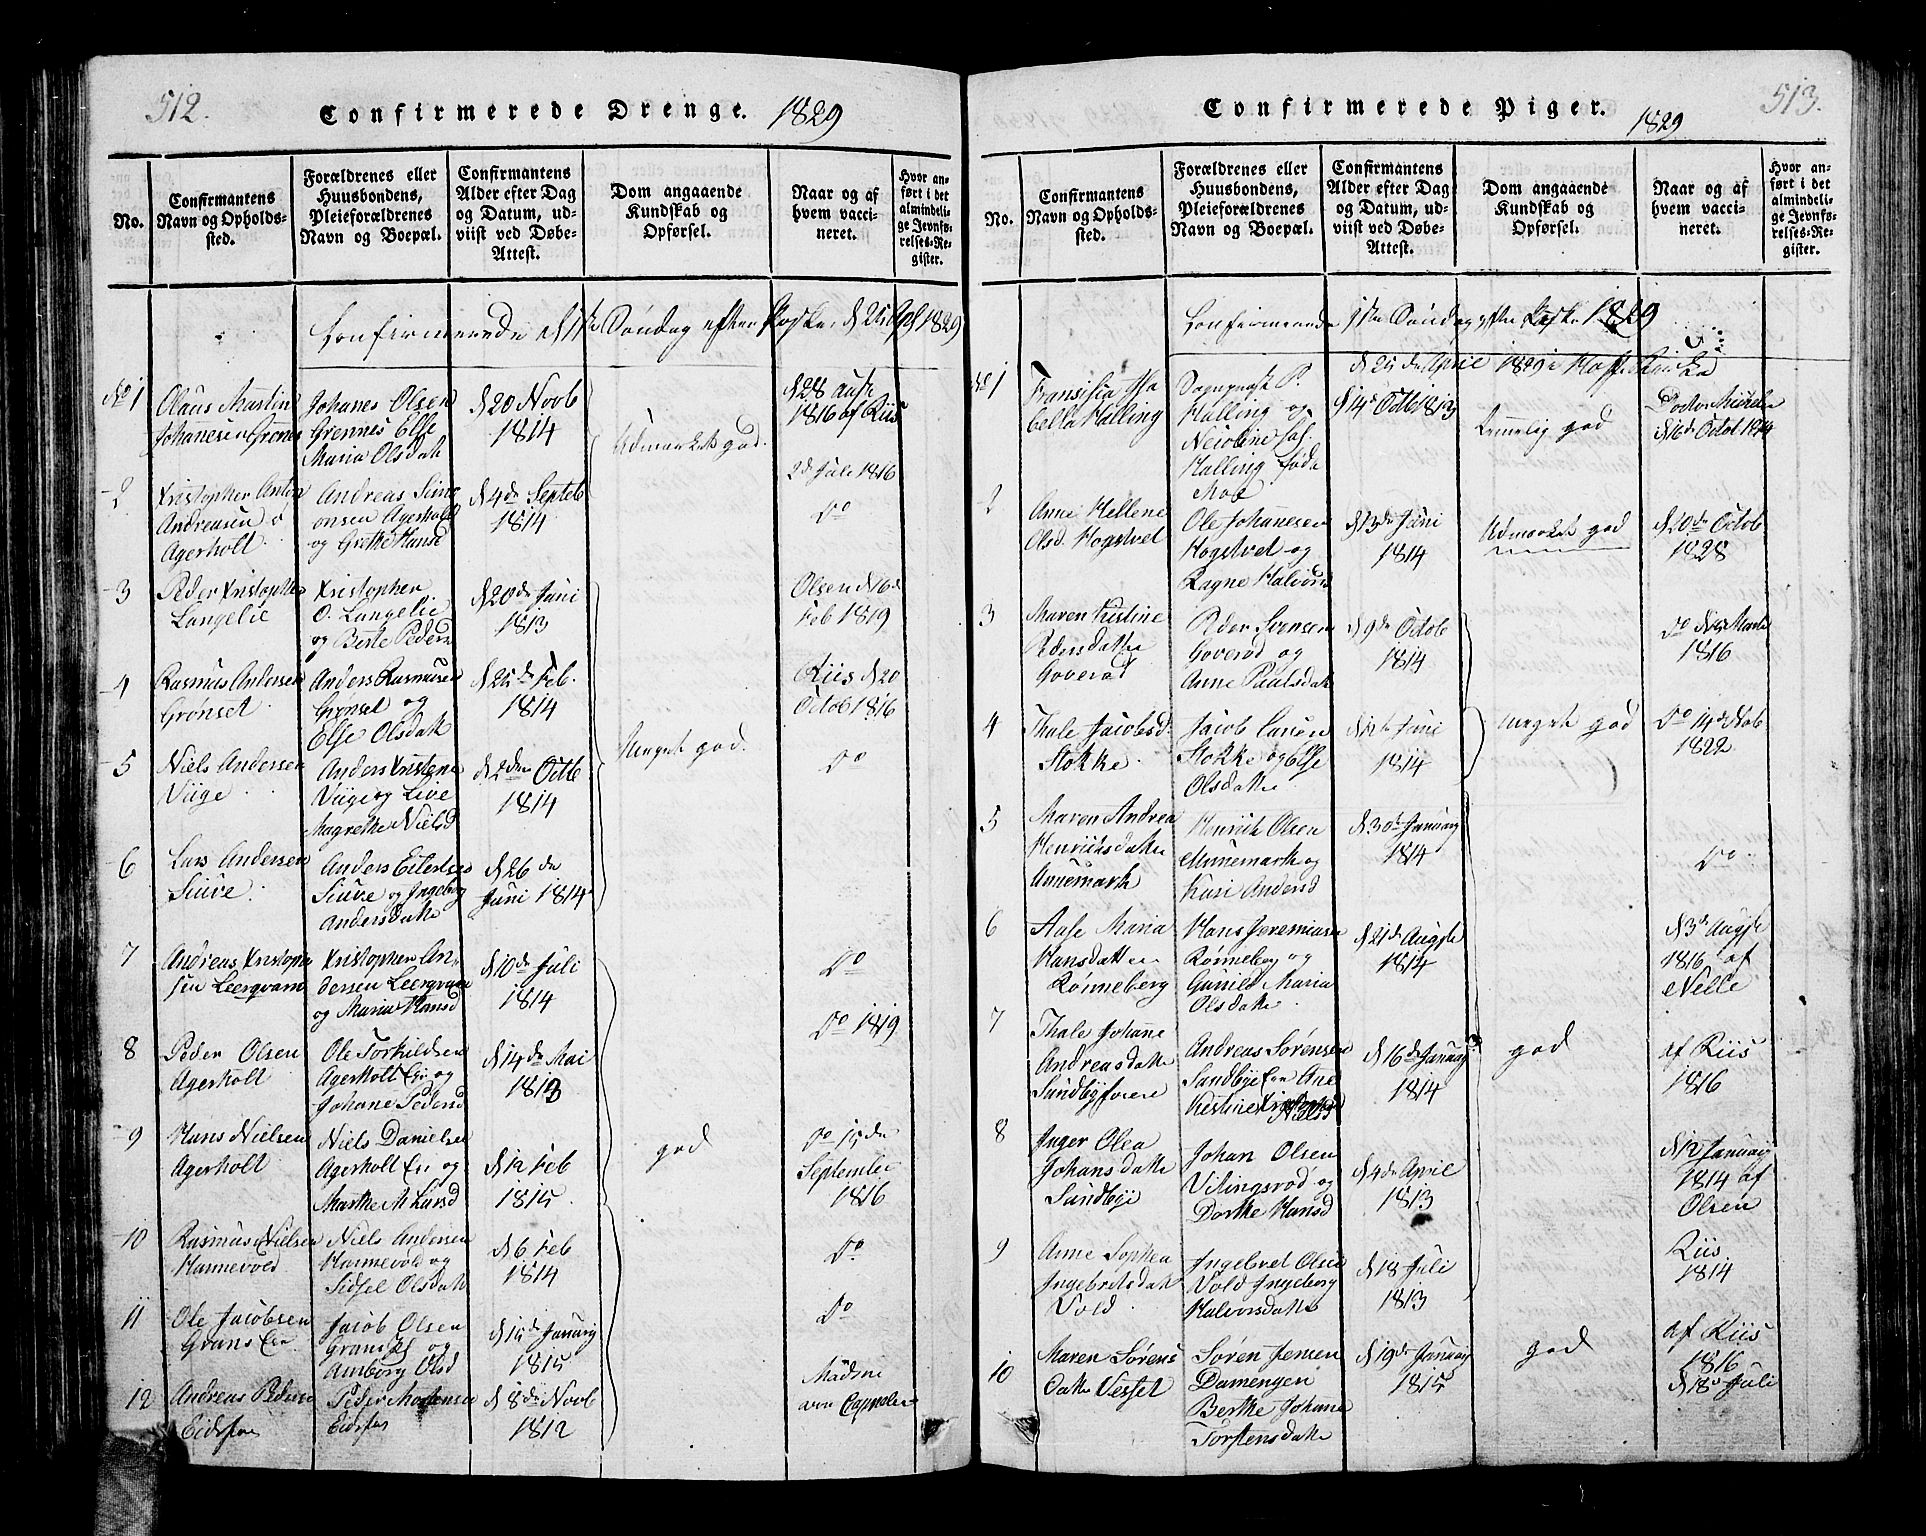 512.
Confirmerede Drenge. 1829
No.
Confirmantens
Navn og Opholds-
sted.
Forældrenes eller
Huusbondens,
Pleieforældrenes
Navn og Boepæl.
Confirmantens
Alder efter Dag
og Datum, ud-
viist ved Døbe-
Attest.
Dom angaaende
Kundskab og
Opførsel.
Naar og af
hvem vacci-
neret.
Hvor an-
ført i det
almindeli-
ge Jevnfø-
relses-Re-
gister.
Confirmerede Søndag efter Paaske, 1829
No 1
Olaus Martin
Johanesen Grenes
Johanes Olsen
Grennes Else
Maria Olsdat
d 20 Novb
1814
Udmærket god.
d 28
1816 af Riis
2
Kristopher Anton
Andreasen
Agerholt
Andreas Simo
onsen Agerhold
og Grethe Hansd
d 4de Septeb
1814
2d Jule 1816
Do
3
Peder Kristophe
Langelie
Kristopher
O. Langelie
og Berte Peders
d 20de Juni
1813
Olsen d 16de
Feb 1819
4
Rasmus Andersen
Grønset
Anders Rasmusen
Grønset og
Else Olsdat
d 25de Feb.
1814
Riis d 20
Octob 1816
5
Niels Andersen
Viige
Anders Kristens
Viige og Live
Magrethe Nielsd
d 2den Octb
1814
Meget god.
Do
6
Lars Andersen
Siuve
Anders Eilertsen
Siuve og Ingeborg
Andersdatt
d 26de
Juni 1814
7
Andreas Kristophe
sen Leerqvam
Kristopher An
dersen Leerqvam
og Maria Hansd
d 10de Juli
1814
Do
8
Peder Olsen
Agerholt
Ole Torkildsen
Agerholt Eie og
Johane Pedersd
d 14de Mai
1813
Do 1819
9
Hans Nielsen
Agerholt
Niels Danielsen
Agerholt Eie og
Marthe M Larsd
d 12 Feb
1815
god
Do 15de
September
1816
10
Rasmus Nielsen
Hannevold
Niels Andersen
Hannevold og
Sidsel Olsdat
d 6 Feb
1814
Do
11
Ole Jacobsen
Grans Eie
Jacob Olsen
Grans og
Amborg Olsd
d 15de Januarij
1815
Do
12
Andreas Peders
Eidsfos
Peder Mortensen
Eidsfos
d 8de Novb
1812
Madme
von Cappelen
513.
Confirmerede Piger. 1829
No.
Confirmantens
Navn og Opholds-
sted.
Forældrenes eller
Huusbondens,
Pleieforældrenes
Navn og Boepæl.
Confirmantens
Alder efter Dag
og Datum, ud-
viist ved Døbe-
Attest.
Dom angaaende
Kundskab og
Opførsel.
Naar og af
hvem vacci-
neret.
Hvor an-
ført i det
almindeli-
ge Jevnfø-
relses-Re-
gister.
Confirmerede 1ste Søndag efter Paaske 1829
d 25de April 1829 i Hof Kirke
No 1
Fransisia Isa
bella Halling
Sognepræst P.
Halling og
Halling føde
Moe
d 14de Octb 1813
Temmelig god
Doctor
d 16de Octob 1814
2
Anne Hellene
Olsd. Hogstvet
Ole Johannesen
Hogstvet og
Ragne Halvorsd
d 13de Juni
1814
Udmærket god
d 20de Octob
1828
3
Maren Kistine
Pedersdatter
Goverød
Peder Svensen
Goverød og
Anne Paulsdat
d 9de Octob
1814
Do Marts
1816
4
Thale Jacobsd.
Stokke
Jacob Larsen
Stokke og Else
Olsdatter
Juni
1814
meget god
Do 14de Nob
1822
5
Maren Andrea
Henriksdatter
Annemark
Henrik Olsen
Annemark og
Kari Andersd
d 30de Januarij
1814
Do
6
Aase Maria
Hansdatter
Rønneberg
Hans Jeremiasen
Rønneberg og
Gunild Maria
Olsdatter
d 21de Augste
1814
d 3de Augste
1816 af
Nelle
7
Thale Johanne
Andreasdatter
Sundbyfoere
Andreas Sørensen
Sandbye Eie Ane
Kistine Nielsd
d 16de Januarij
1814
god
af Riis
1816
8
Inger Olea
Johansdatter
Sandbye
Johan Olsen
Vilingsrød og
Dorthe Hansd
d 4de April
1813
d 12 Januarij
1814 af
Olsen
9
Anne Sophea
Ingebretsdat
Vold
Ingebret Olsen
Vold Ingeborg
Halvorsdatter
d 18 Juli
1813
Riis
1814
10
Maren Sørens
Datter Vesset
Søren Jensen
Damengen
Berthe Johane
Torstensdatter
d 19de Januarij
1815
god
af Riis
1816
d 18de Juli